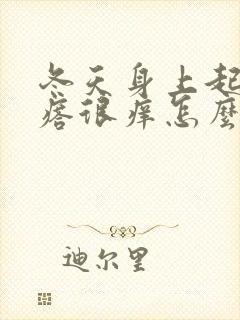 冬天身上起
痞很痒怎麽
迪尔里